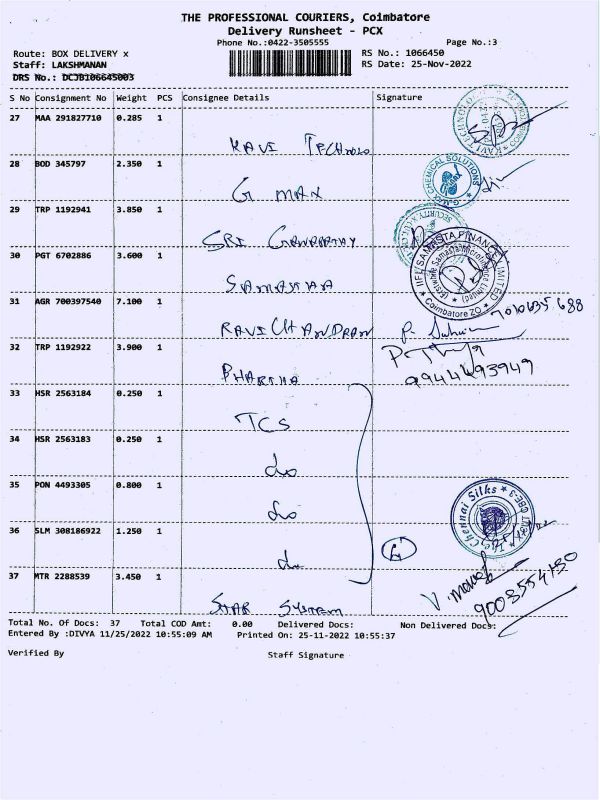 THE PROFESSIONAL COURIERS, Coimbatore
Delivery Runsheet - PCX
Phone No.:0422-3505555
Page No.:3
Route: BOX DELIVERY x
RS No.: 1066450
Staff: LAKSHMANAN
RS Date: 25-Nov-2022
DRS No.: DCJB106645003
S No Consignment No Weight PCS Consignee Details Signature
27 MAA 291827710 0.285 1
KAVI TECHNOLO
28 BOD 345797 2.350 1
G MAX
CHEMICAL SOLUTIONS
29 TRP 1192941 3.850 1
SRI GANAPATHY
SECURITY
30 PGT 6702886 3.600 1
SAMASTHA
IIFL SAMASTA FINANCE LIMITED
(Erstwhile Samasta Microfinance Limited)
Coimbatore ZO.
31 AGR 700397540 7.100 1
RAVICHANDRAN
7010635688
32 TRP 1192922 3.900 1
BHARTHA
9944493949
33 HSR 2563184 0.250 1
TCS
34 HSR 2563183 0.250 1
do
35 PON 4493305 0.800 1
do
The Chennai Silks
36 SLM 308186922 1.250 1
do
4
37 MTR 2288539 3.450 1
STAR SYSTEM
V. manoj
9003554130
Total No. Of Docs: 37 Total COD Amt: 0.00 Delivered Docs: Non Delivered Docs:
Entered By :DIVYA 11/25/2022 10:55:09 AM Printed On: 25-11-2022 10:55:37
Verified By Staff Signature